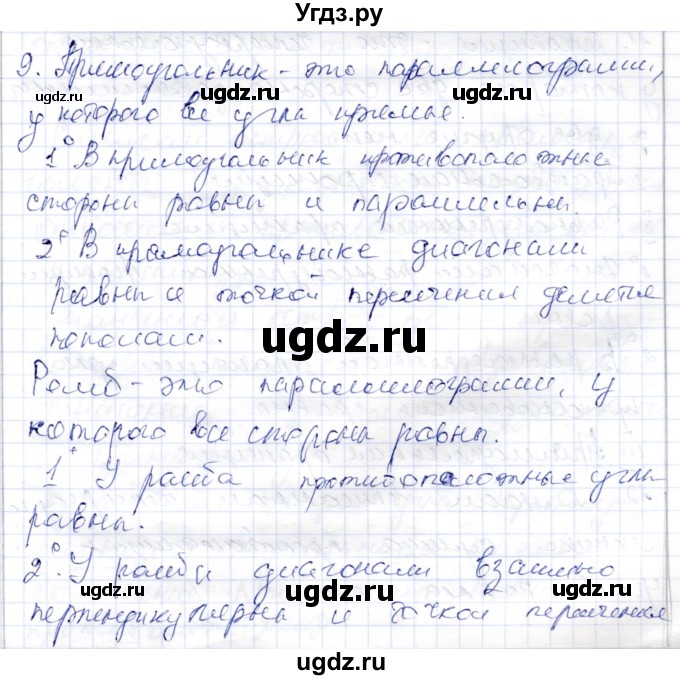 Угдз.ру
9. Прямоугольник - это параллелограмм,
у которого все углы прямые.
1° В прямоугольник противоположные
стороны равны и параллельны.
2° В прямоугольнике диагонали
равны и точкой пересечения делятся
пополам.
Ромб - это параллелограмм, у
которого все стороны равны.
1° У ромба противоположные углы
равны.
2°. У ромба диагонали взаимно
перпендикулярны и точкой пересечения
ugdz.ru
ugdz.ru
ugdz.ru
ugdz.ru
ugdz.ru
ugdz.ru
ugdz.ru
ugdz.ru
ugdz.ru
ugdz.ru
ugdz.ru
ugdz.ru